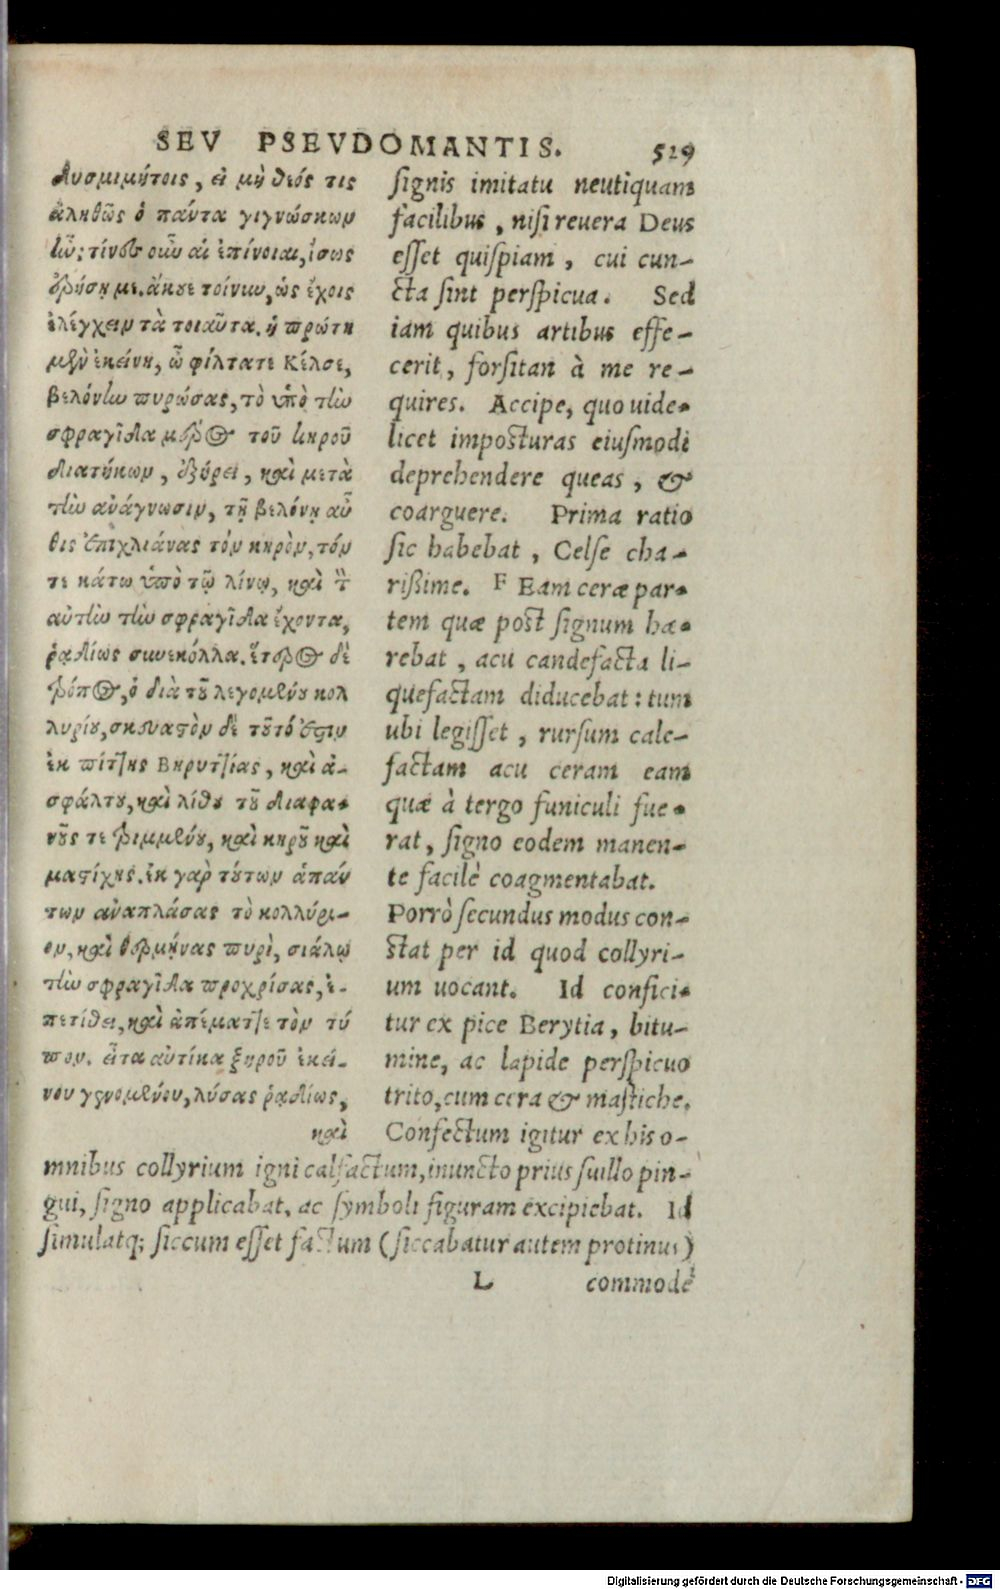 SEV PSEVDOMANTIS. 529
δυσμιμήτοις, εἰ μὴ θεός τις
ἀληθῶς ὁ πάντα γιγνώσκων
ἦν; τίνες οὖν αἱ ἐπίνοιαι, ἴσως
ἐρήσῃ με. ἄκουε τοίνυν, ὡς ἔχοις
ἐλέγχειν τὰ τοιαῦτα. ἡ πρώτη
μὲν ἐκείνη, ὦ φίλτατε Κέλσε,
βελόνην πυρώσας, τὸ ὑπὸ τὴν
σφραγῖδα μέρος τοῦ κηροῦ
διατήκων, ἐξῄρει, καὶ μετὰ
τὴν ἀνάγνωσιν, τῇ βελόνῃ αὖ
θις ἐπιχλιάνας τὸν κηρὸν, τόν
τε κάτω ὑπὸ τῷ λίνῳ, καὶ τ̀
αὐτὴν τὴν σφραγῖδα ἔχοντα,
ῥᾳδίως συνεκόλλα. ἕτερος δὲ
τρόπος, ὁ διὰ τοῦ λεγομένου κολ
λυρίου, σκευαστὸν δὲ τοῦτό ἐστιν
ἐκ πίττης Βηρυττίας, καὶ ἀ-
σφάλτου, καὶ λίθου τοῦ διαφα-
νοῦς τε τριμμένου, καὶ κηροῦ καὶ
μαστίχης. ἐκ γαρ τούτων ἁπάν
των ἀναπλάσας τὸ κολλύρι-
ον, καὶ θερμήνας πυρὶ, σιάλῳ
τὴν σφραγῖδα προχρίσας, ἐ-
πετίθει, καὶ ἀπέματτε τὸν τύ
πον. εἶτα αὐτίκα ξηροῦ ἐκεί-
νου γενομένου, λύσας ῥᾳδίως,
καὶ
signis imitatu neutiquam
facilibus, nisi reuera Deus
esset quispiam, cui cun-
cta sint perspicua. Sed
iam quibus artibus effe-
cerit, forsitan à me re-
quires. Accipe, quo uide-
licet imposturas eiusmodi
deprehendere queas, &
coarguere. Prima ratio
sic habebat, Celse cha-
rißime. F Eam ceræ par-
tem quæ post signum hæ-
rebat, acu candefacta li-
quefactam diducebat: tum
ubi legisset, rursum cale-
factam acu ceram eam
quæ à tergo funiculi fue-
rat, signo eodem manen-
te facilè coagmentabat.
Porrò secundus modus con-
stat per id quod collyri-
um uocant. Id confici-
tur ex pice Berytia, bitu-
mine, ac lapide perspicuo
trito, cum cera & mastiche.
Confectum igitur ex his o-
mnibus collyrium igni calfactum, inuncto prius suillo pin-
gui, signo applicabat, ac symboli figuram excipiebat. Id
simulatq; siccum esset factum (siccabatur autem protinus)
L commodè
Digitalisierung gefördert durch die Deutsche Forschungsgemeinschaft - DFG